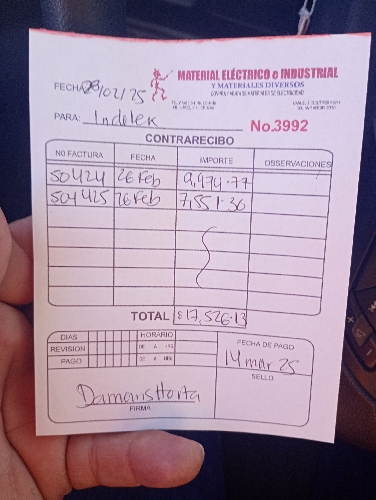 MATERIAL ELÉCTRICO e INDUSTRIAL
Y MATERIALES DIVERSOS
FECHA 28/02/25
PARA: Indelek
No.3992
CONTRARECIBO
NO FACTURA FECHA IMPORTE OBSERVACIONES
50424 26 Feb 9,974.77
504425 26 Feb 7,551.36
TOTAL $17,526.13
DIAS HORARIO FECHA DE PAGO
REVISION DE A HRS
14 mar 25
PAGO DE A HRS
SELLO
Damaris Horta
FIRMA